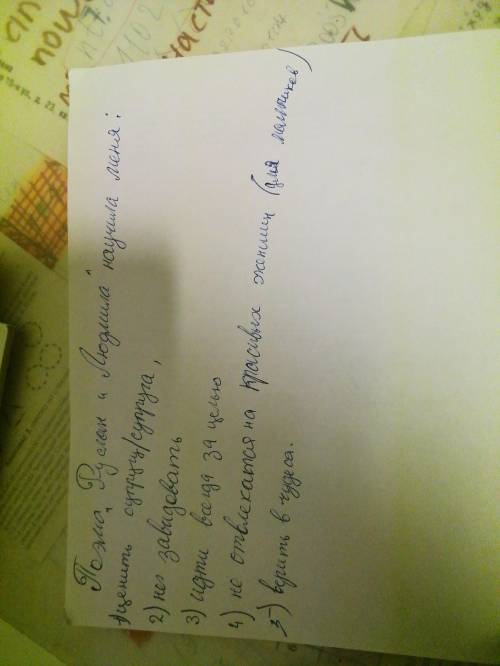 Поэма „Руслан и Людмила" научила меня:
1) ценить супругу/супруга,
2) не завидовать
3) идти всегда за целью
4) не отвлекатся на красивых женщин (для мальчиков)
5) верить в чудеса.
cin
пош
1102
част